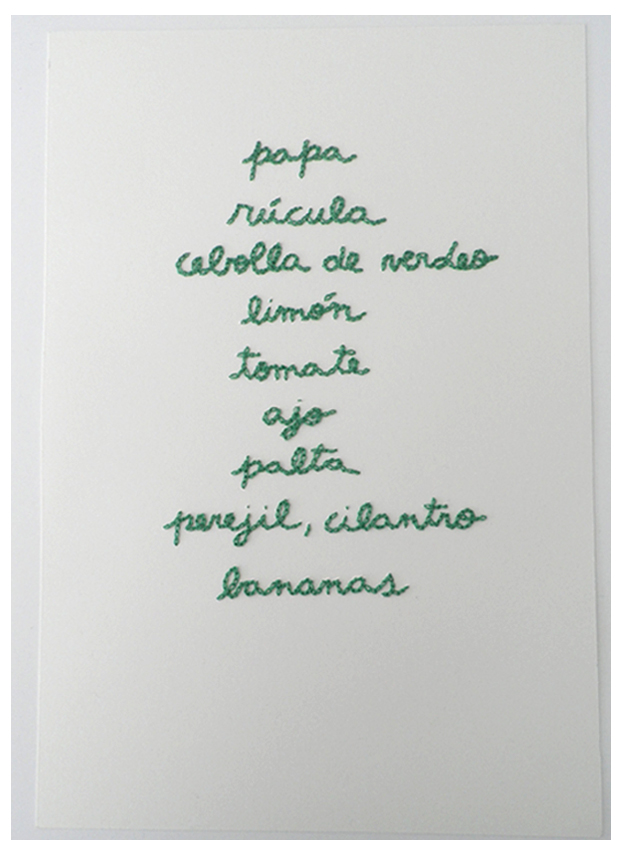 papa
rúcula
cebolla de verdeo
limón
tomate
ajo
palta
perejil, cilantro
bananas